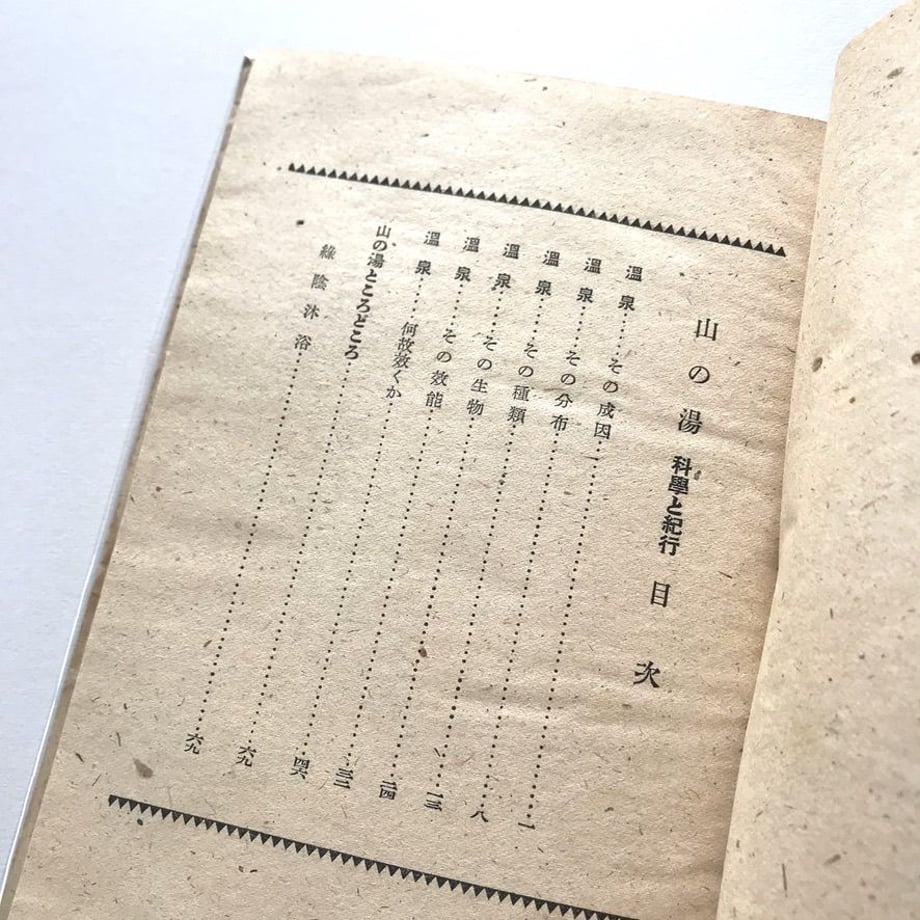 山の湯 科學と紀行 目次
溫泉……その成因……一
溫泉……その分布……八
溫泉……その種類……一三
溫泉……その生物……二四
溫泉……その效能……三二
溫泉……何故效くか……四六
山の湯ところどころ……六九
綠陰沐浴……六九